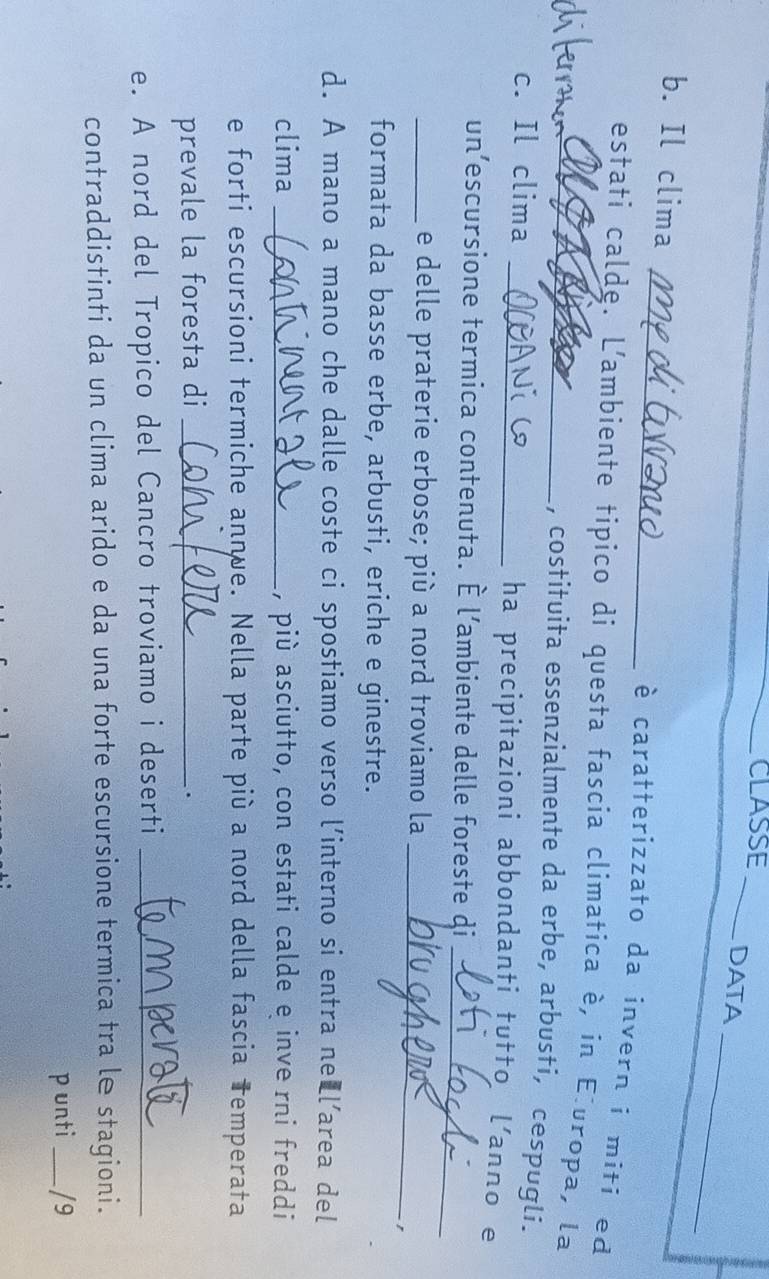 CLASSE ___ DATA ___
b. Il clima mediterraneo è caratterizzato da inverni miti ed
estati calde. L'ambiente tipico di questa fascia climatica è, in Europa, la
___, costituita essenzialmente da erbe, arbusti, cespugli.
c. Il clima OCEANICO ha precipitazioni abbondanti tutto l'anno e
un'escursione termica contenuta. È l'ambiente delle foreste di
___ e delle praterie erbose; più a nord troviamo la ___,
formata da basse erbe, arbusti, eriche e ginestre.
d. A mano a mano che dalle coste ci spostiamo verso l'interno si entra nell'area del
clima continentale, più asciutto, con estati calde e inverni freddi
e forti escursioni termiche annue. Nella parte più a nord della fascia temperata
prevale la foresta di conifere.
e. A nord del Tropico del Cancro troviamo i deserti
contraddistinti da un clima arido e da una forte escursione termica tra le stagioni.
punti ___/9